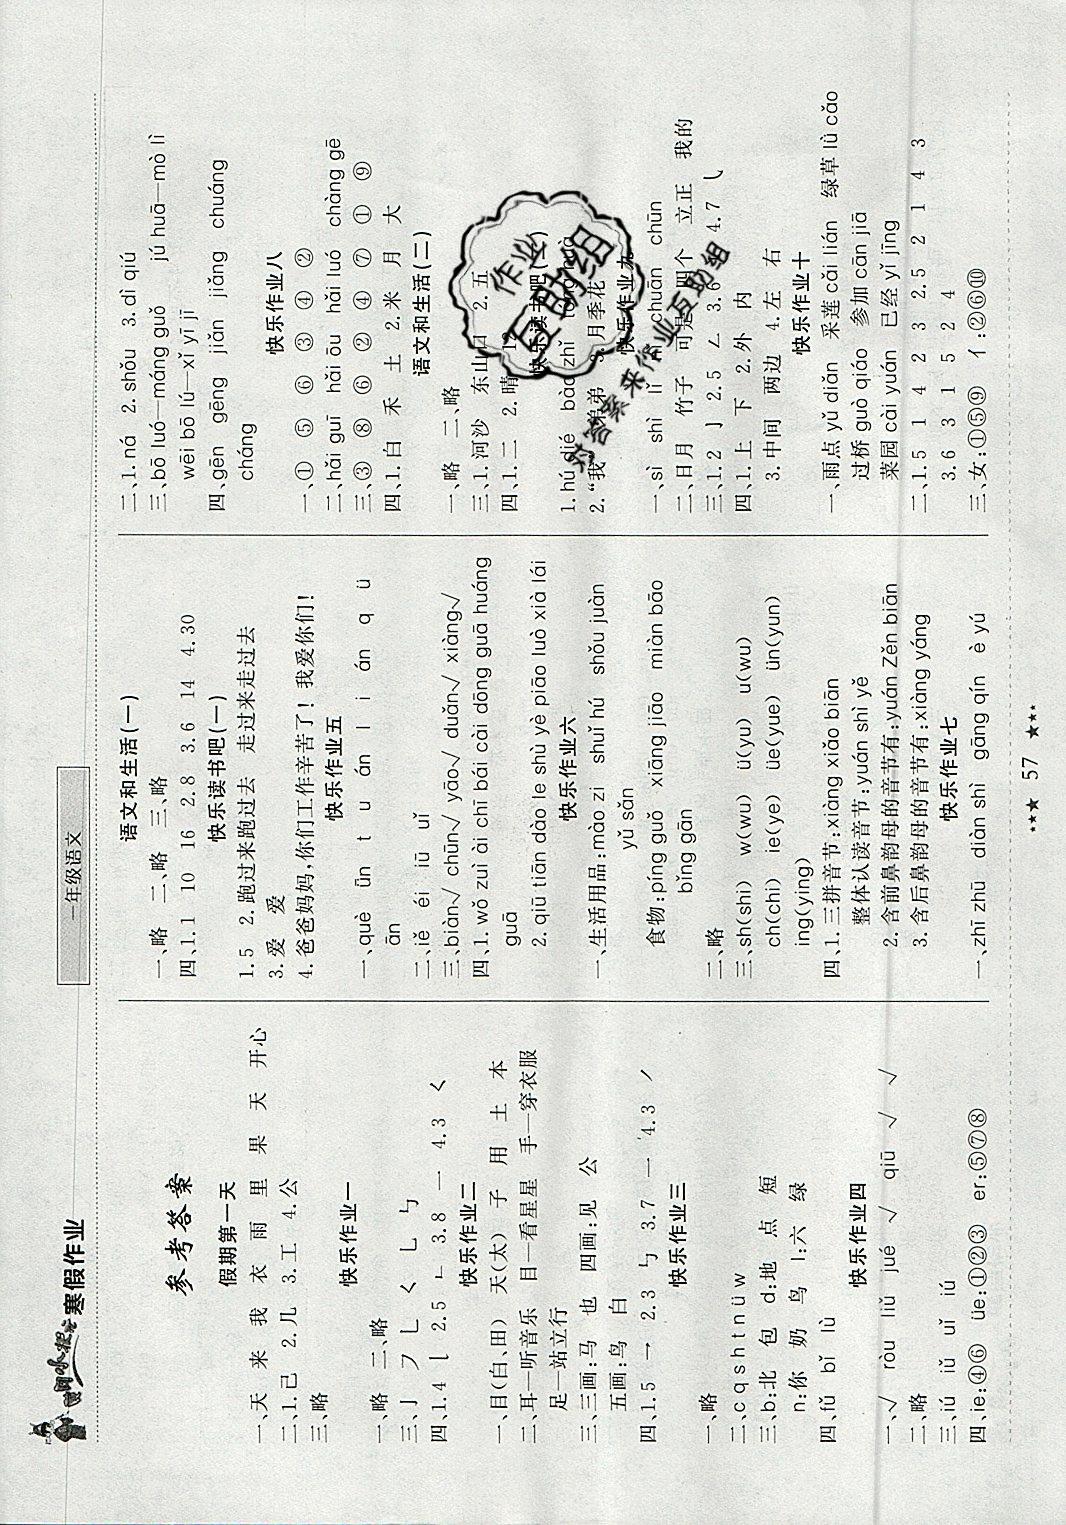 寒假作业
一年级语文
参考答案
假期第一天
一、天 来 我 衣 雨 里 果 天 开心
二、1.己 2.几 3.工 4.公
三、略
快乐作业一
一、略 二、略
三、亅 ㇇ 乚 ㄑ ㇄ ㄣ
四、1.4 丨 2.5 3.8 一 4.3 ㄑ
快乐作业二
一、目(白、田) 天(太) 子 用 土 本
二、耳—听音乐 目—看星星 手—穿衣服
足—站立行
三、三画:马 也 四画:见 公
五画:鸟 白
四、1.5 → 2.3 ㄣ 3.7 一 4.3 ㇒
快乐作业三
一、略
二、c q s h t n ü w
三、b:北 包 d:地 点 短
n:你 奶 鸟 l:六 绿
四、fǔ bǐ lù
快乐作业四
一、√ ròu liǔ jué √ qiū √ √
二、略
三、iú iǔ uǐ iú
四、ie:④⑥ üe:①②③ er:⑤⑦⑧
语文和生活(一)
一、略 二、略 三、略
四、1.1 10 16 2.8 3.6 14 4.30
快乐读书吧(一)
1.5 2.跑过来跑过去 走过来走过去
3.爱 爱
4.爸爸妈妈,你们工作辛苦了！我爱你们！
快乐作业五
一、què ūn t u án l i án q ü
ān
二、iě éi iū uǐ
三、biàn√ chūn√ yāo√ duǎn√ xiàng√
四、1.wǒ zuì ài chī bái cài dōng guā huáng
guā
2.qiū tiān dào le shù yè piāo luò xià lái
快乐作业六
一、生活用品:mào zi shuǐ hú shǒu juàn
yǔ sǎn
食物:píng guǒ xiāng jiāo miàn bāo
bīng gān
二、略
三、sh(shi) w(wu) ü(yu) u(wu)
ch(chi) ie(ye) üe(yue) ün(yun)
ing(ying)
四、1.三拼音节:xiàng xiǎo biān
整体认读音节:yuán shì yě
2.含前鼻韵母的音节有:yuán Zěn biān
3.含后鼻韵母的音节有:xiàng yáng
快乐作业七
一、zhī zhū diàn shì gāng qín è yú
二、1.ná 2.shǒu 3.dì qiú
三、bō luó—máng guǒ jú huā—mò lì
wēi bō lú—xǐ yī jī
四、gēn gēng jiǎn jiǎng chuáng
cháng
快乐作业八
一、① ⑤ ⑥ ③ ④ ②
二、hǎi guī hǎi ōu hǎi luó chàng gē
三、③ ⑧ ⑥ ② ④ ⑦ ① ⑨
四、1.白 禾 土 2.米 月 大
语文和生活(二)
一、略 二、略
三、1.河沙 东山口 2.五
四、1.二 2.晴 12
快乐读书吧(二)
1.hú dié bào zhǐ
2."我 弟弟 3.月季花
快乐作业九
一、sì shì lǐ chuān chūn
二、日月 竹子 可是 四个 立正 我的
三、1.2 亅 2.5 ㄥ 3.6 4.7 ㇂
四、1.上 下 2.外 内
3.中间 两边 4.左 右
快乐作业十
一、雨点 yǔ diǎn 采莲 cǎi lián 绿草 lǜ cǎo
过桥 guò qiáo 参加 cān jiā
菜园 cài yuán 已经 yǐ jīng
二、1.5 1 4 2 3 2.5 2 1 4 3
3.6 3 1 5 2 4
三、女:①⑤⑨ 亻:②⑥⑩
57
作业
互助组
对答案来作业互助组